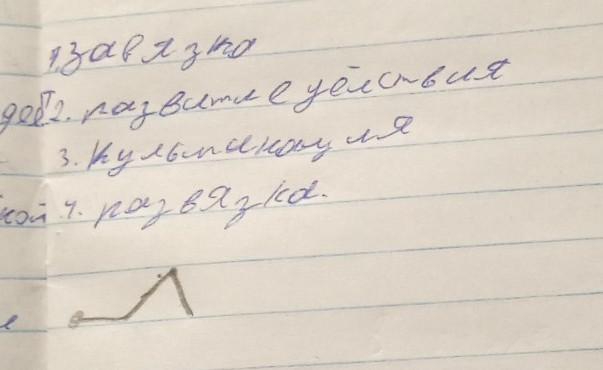 1. завязка
2. развитие действия
3. Кульминация
4. развязка.